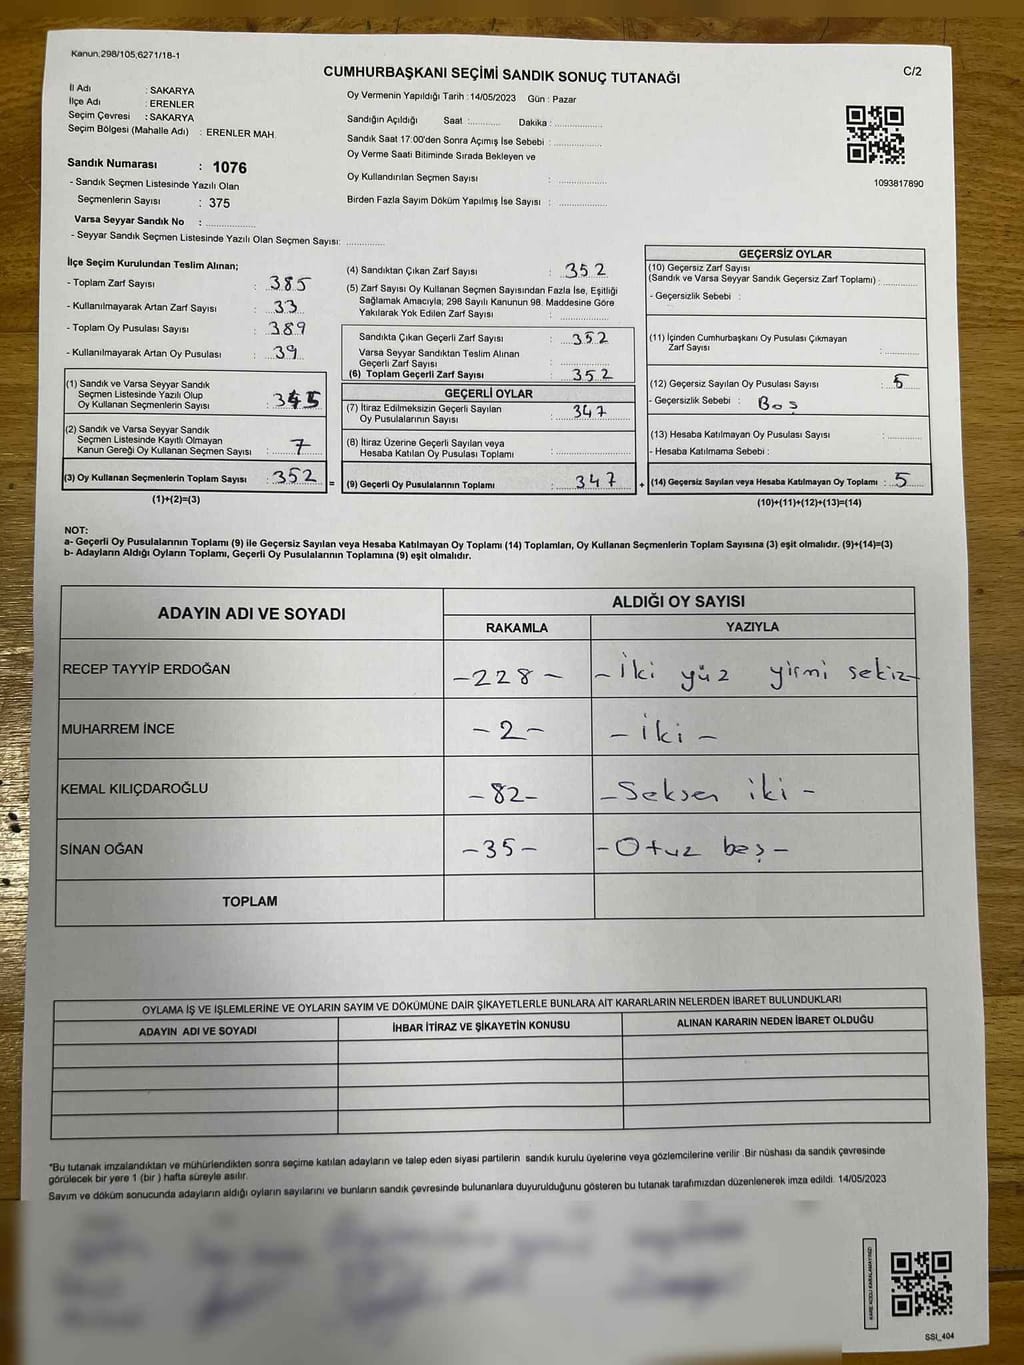 Kanun,298/105,6271/18-1
CUMHURBAŞKANI SEÇİMİ SANDIK SONUÇ TUTANAĞI
C/2
İl Adı : SAKARYA
İlçe Adı : ERENLER
Seçim Çevresi : SAKARYA
Seçim Bölgesi (Mahalle Adı) : ERENLER MAH.
Sandık Numarası : 1076
- Sandık Seçmen Listesinde Yazılı Olan
Seçmenlerin Sayısı : 375
Varsa Seyyar Sandık No : ..............
- Seyyar Sandık Seçmen Listesinde Yazılı Olan Seçmen Sayısı: ............
Oy Vermenin Yapıldığı Tarih : 14/05/2023 Gün : Pazar
Sandığın Açıldığı Saat :.......... Dakika : ..............
Sandık Saat 17:00'den Sonra Açımış İse Sebebi : ..............
Oy Verme Saati Bitiminde Sırada Bekleyen ve
Oy Kullandırılan Seçmen Sayısı : ..............
Birden Fazla Sayım Döküm Yapılmış İse Sayısı : ..............
1093817890
İlçe Seçim Kurulundan Teslim Alınan;
- Toplam Zarf Sayısı : 385
- Kullanılmayarak Artan Zarf Sayısı : 33
- Toplam Oy Pusulası Sayısı : 389
- Kullanılmayarak Artan Oy Pusulası : 39
(1) Sandık ve Varsa Seyyar Sandık
Seçmen Listesinde Yazılı Olup
Oy Kullanan Seçmenlerin Sayısı : 345
(2) Sandık ve Varsa Seyyar Sandık
Seçmen Listesinde Kayıtlı Olmayan
Kanun Gereği Oy Kullanan Seçmen Sayısı : 7
(3) Oy Kullanan Seçmenlerin Toplam Sayısı : 352 =
(1)+(2)=(3)
(4) Sandıktan Çıkan Zarf Sayısı : 352
(5) Zarf Sayısı Oy Kullanan Seçmen Sayısından Fazla İse, Eşitliği
Sağlamak Amacıyla; 298 Sayılı Kanunun 98. Maddesine Göre
Yakılarak Yok Edilen Zarf Sayısı : ..............
Sandıkta Çıkan Geçerli Zarf Sayısı : 352
Varsa Seyyar Sandıktan Teslim Alınan
Geçerli Zarf Sayısı : ..............
(6) Toplam Geçerli Zarf Sayısı : 352
GEÇERLİ OYLAR
(7) İtiraz Edilmeksizin Geçerli Sayılan
Oy Pusulalarının Sayısı : 347
(8) İtiraz Üzerine Geçerli Sayılan veya
Hesaba Katılan Oy Pusulası Toplamı : ..............
(9) Geçerli Oy Pusulalarının Toplamı : 347 +
GEÇERSİZ OYLAR
(10) Geçersiz Zarf Sayısı
(Sandık ve Varsa Seyyar Sandık Geçersiz Zarf Toplamı) : ..........
- Geçersizlik Sebebi :
(11) İçinden Cumhurbaşkanı Oy Pusulası Çıkmayan
Zarf Sayısı : ..........
(12) Geçersiz Sayılan Oy Pusulası Sayısı : 5
- Geçersizlik Sebebi : Boş
(13) Hesaba Katılmayan Oy Pusulası Sayısı : ..........
- Hesaba Katılmama Sebebi :
(14) Geçersiz Sayılan veya Hesaba Katılmayan Oy Toplamı : 5
(10)+(11)+(12)+(13)=(14)
NOT:
a- Geçerli Oy Pusulalarının Toplamı (9) ile Geçersiz Sayılan veya Hesaba Katılmayan Oy Toplamı (14) Toplamları, Oy Kullanan Seçmenlerin Toplam Sayısına (3) eşit olmalıdır. (9)+(14)=(3)
b- Adayların Aldığı Oyların Toplamı, Geçerli Oy Pusulalarının Toplamına (9) eşit olmalıdır.
ADAYIN ADI VE SOYADI
ALDIĞI OY SAYISI
RAKAMLA YAZIYLA
RECEP TAYYİP ERDOĞAN -228- -İki yüz yirmi sekiz-
MUHARREM İNCE -2- -İki-
KEMAL KILIÇDAROĞLU -82- -Seksen iki-
SİNAN OĞAN -35- -Otuz beş-
TOPLAM
OYLAMA İŞ VE İŞLEMLERİNE VE OYLARIN SAYIM VE DÖKÜMÜNE DAİR ŞİKAYETLERLE BUNLARA AİT KARARLARIN NELERDEN İBARET BULUNDUKLARI
ADAYIN ADI VE SOYADI İHBAR İTİRAZ VE ŞİKAYETİN KONUSU ALINAN KARARIN NEDEN İBARET OLDUĞU
*Bu tutanak imzalandıktan ve mühürlendikten sonra seçime katılan adayların ve talep eden siyasi partilerin sandık kurulu üyelerine veya gözlemcilerine verilir .Bir nüshası da sandık çevresinde
görülecek bir yere 1 (bir ) hafta süreyle asılır.
Sayım ve döküm sonucunda adayların aldığı oyların sayılarını ve bunların sandık çevresinde bulunanlara duyurulduğunu gösteren bu tutanak tarafımızdan düzenlenerek imza edildi. 14/05/2023
KARE KODU KARALAMAYINIZ!
SSI_404